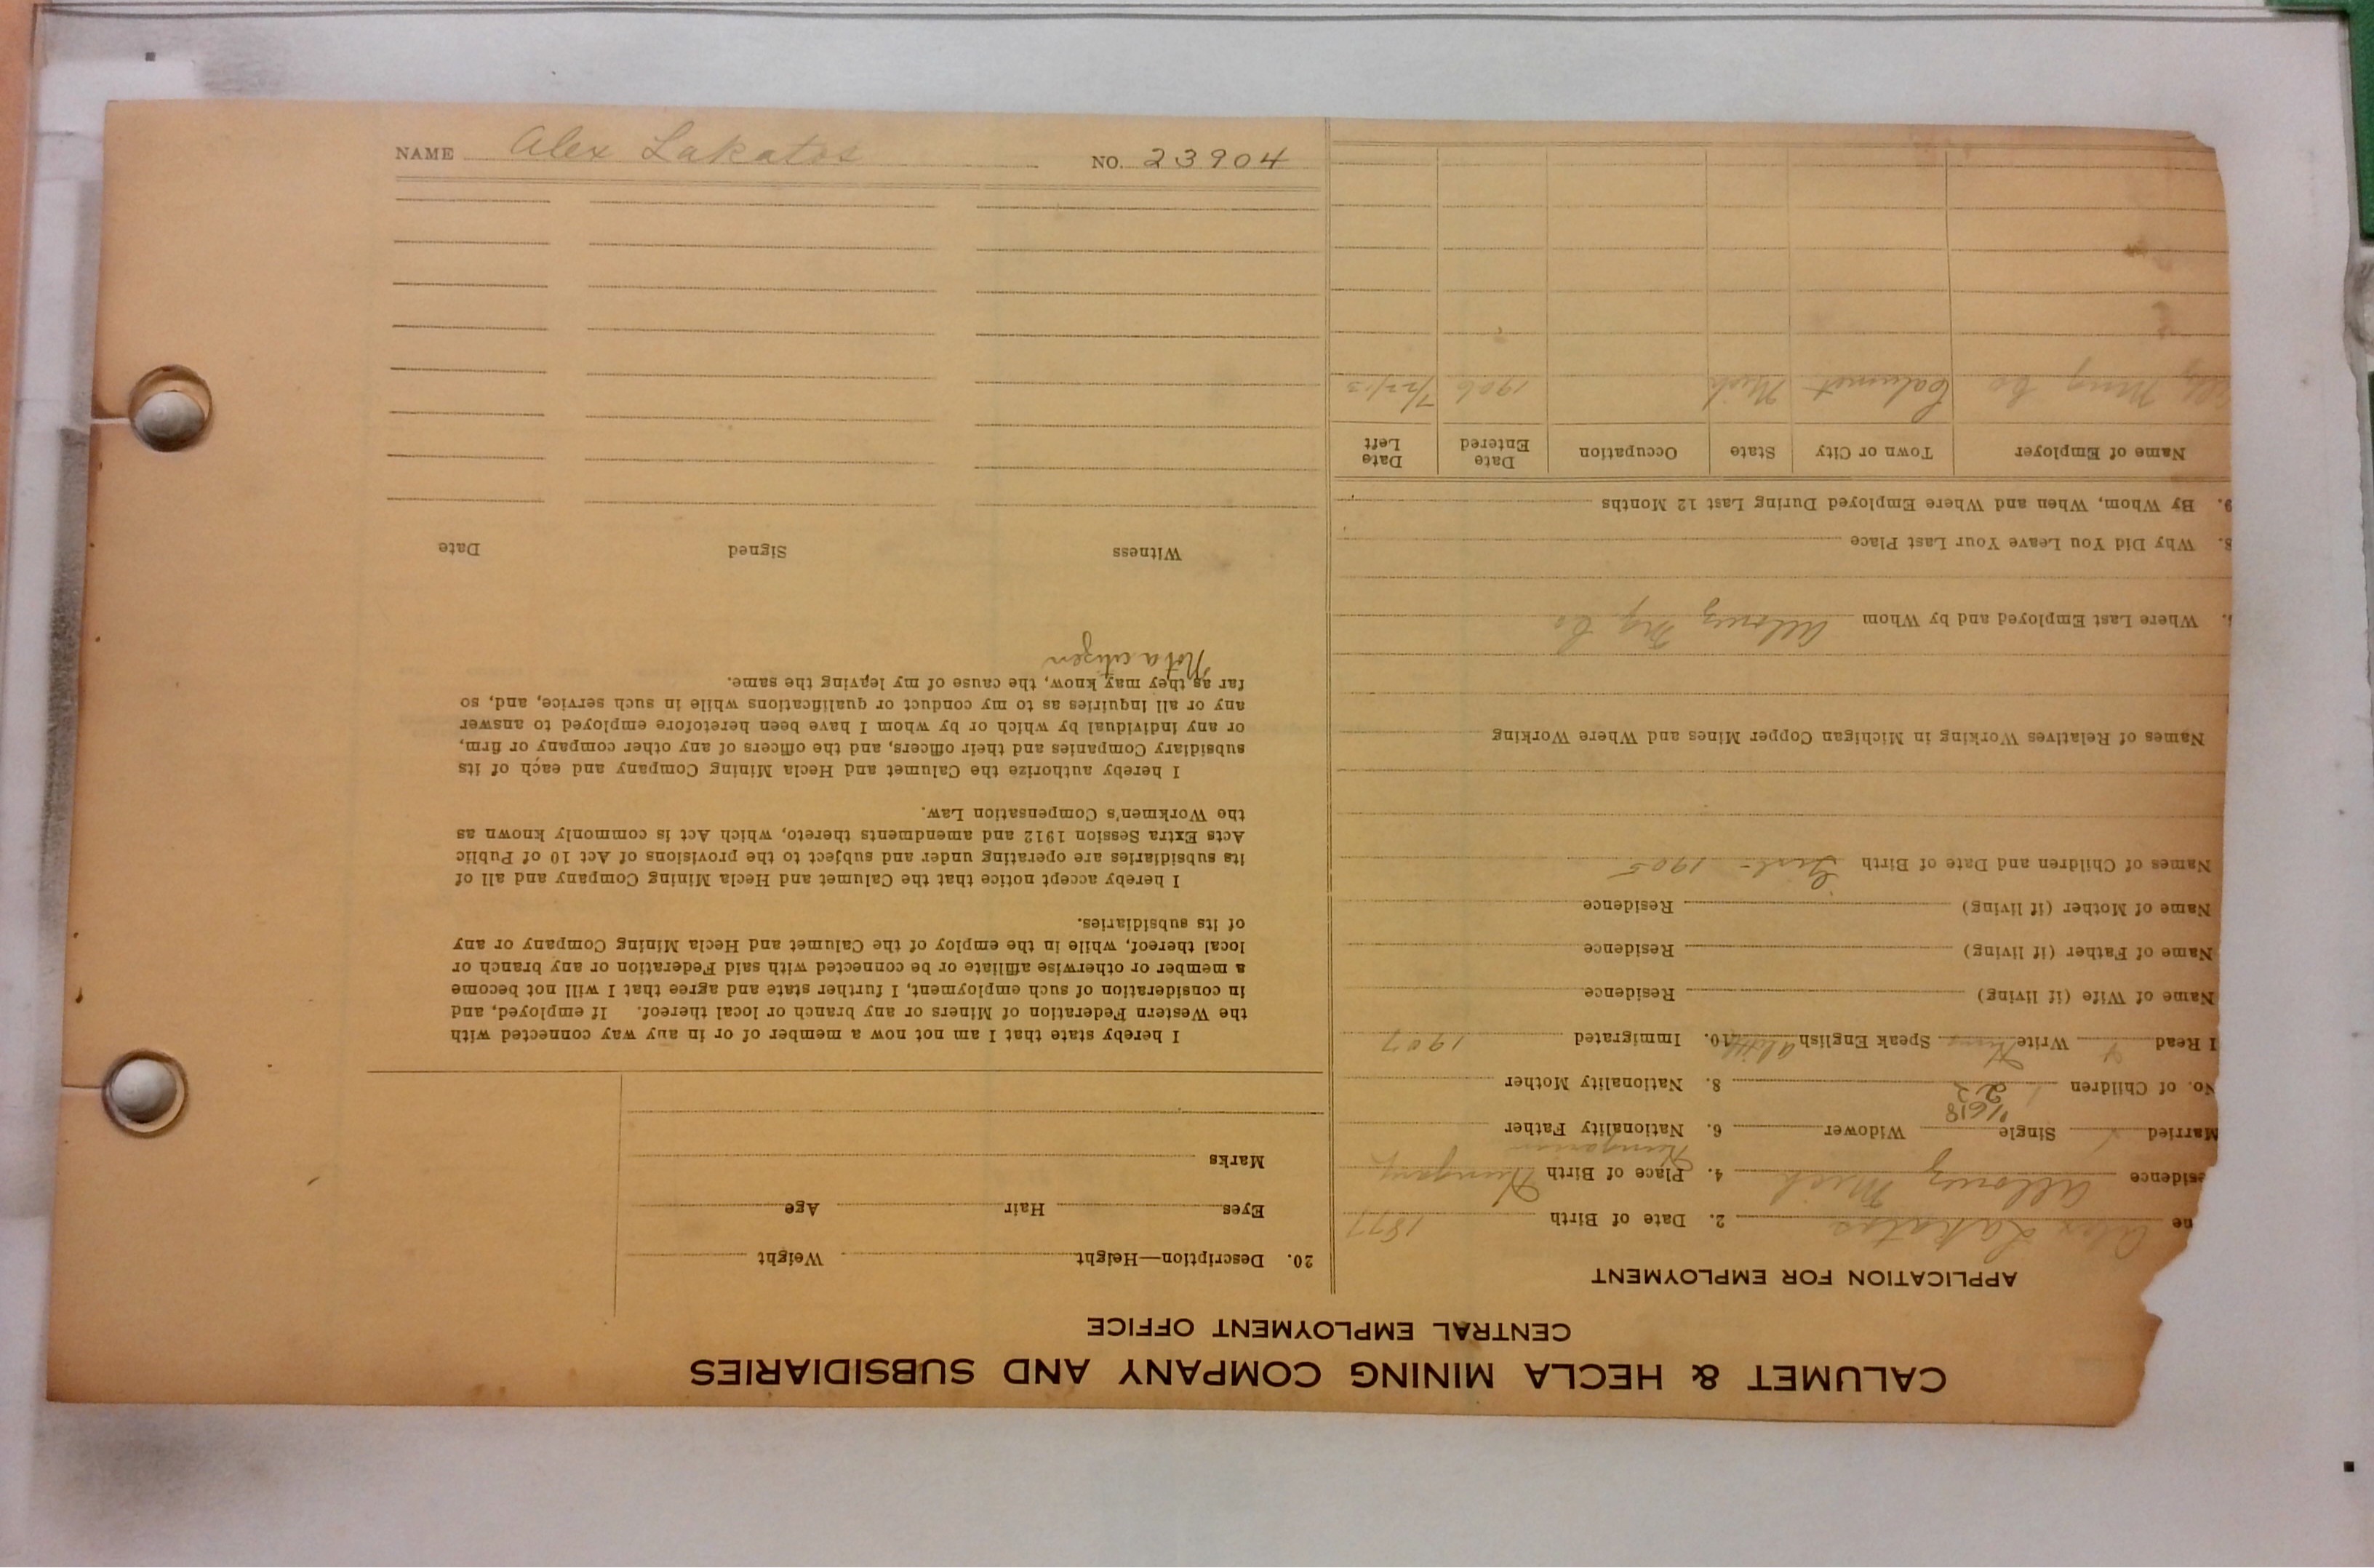 CALUMET & HECLA MINING COMPANY AND SUBSIDIARIES
CENTRAL EMPLOYMENT OFFICE
APPLICATION FOR EMPLOYMENT
me Alex Lakatos 2. Date of Birth 1877
esidence Allouez Mich 4. Place of Birth Hungary
Hungarian
Married Single Widower 6. Nationality Father
No. of Children 8. Nationality Mother
I Read Write Speak English 10. Immigrated 1907
Name of Wife (if living) Residence
Name of Father (if living) Residence
Name of Mother (if living) Residence
Names of Children and Date of Birth 1905
Names of Relatives Working in Michigan Copper Mines and Where Working
Where Last Employed and by Whom Allouez Mg Co
8. Why Did You Leave Your Last Place
9. By Whom, When and Where Employed During Last 12 Months
Name of Employer Town or City State Occupation Date Entered Date Left
Ming Co Calumet Mich 1906 7/22/13
20. Description—Height Weight
Eyes Hair Age
Marks
I hereby state that I am not now a member of or in any way connected with
the Western Federation of Miners or any branch or local thereof. If employed, and
in consideration of such employment, I further state and agree that I will not become
a member or otherwise affiliate or be connected with said Federation or any branch or
local thereof, while in the employ of the Calumet and Hecla Mining Company or any
of its subsidiaries.
I hereby accept notice that the Calumet and Hecla Mining Company and all of
its subsidiaries are operating under and subject to the provisions of Act 10 of Public
Acts Extra Session 1912 and amendments thereto, which Act is commonly known as
the Workmen's Compensation Law.
I hereby authorize the Calumet and Hecla Mining Company and each of its
subsidiary Companies and their officers, and the officers of any other company or firm,
or any individual by which or by whom I have been heretofore employed to answer
any or all inquiries as to my conduct or qualifications while in such service, and, so
far as they may know, the cause of my leaving the same.
Not a citizen
Witness Signed Date
NAME Alex Lakatos NO. 23904